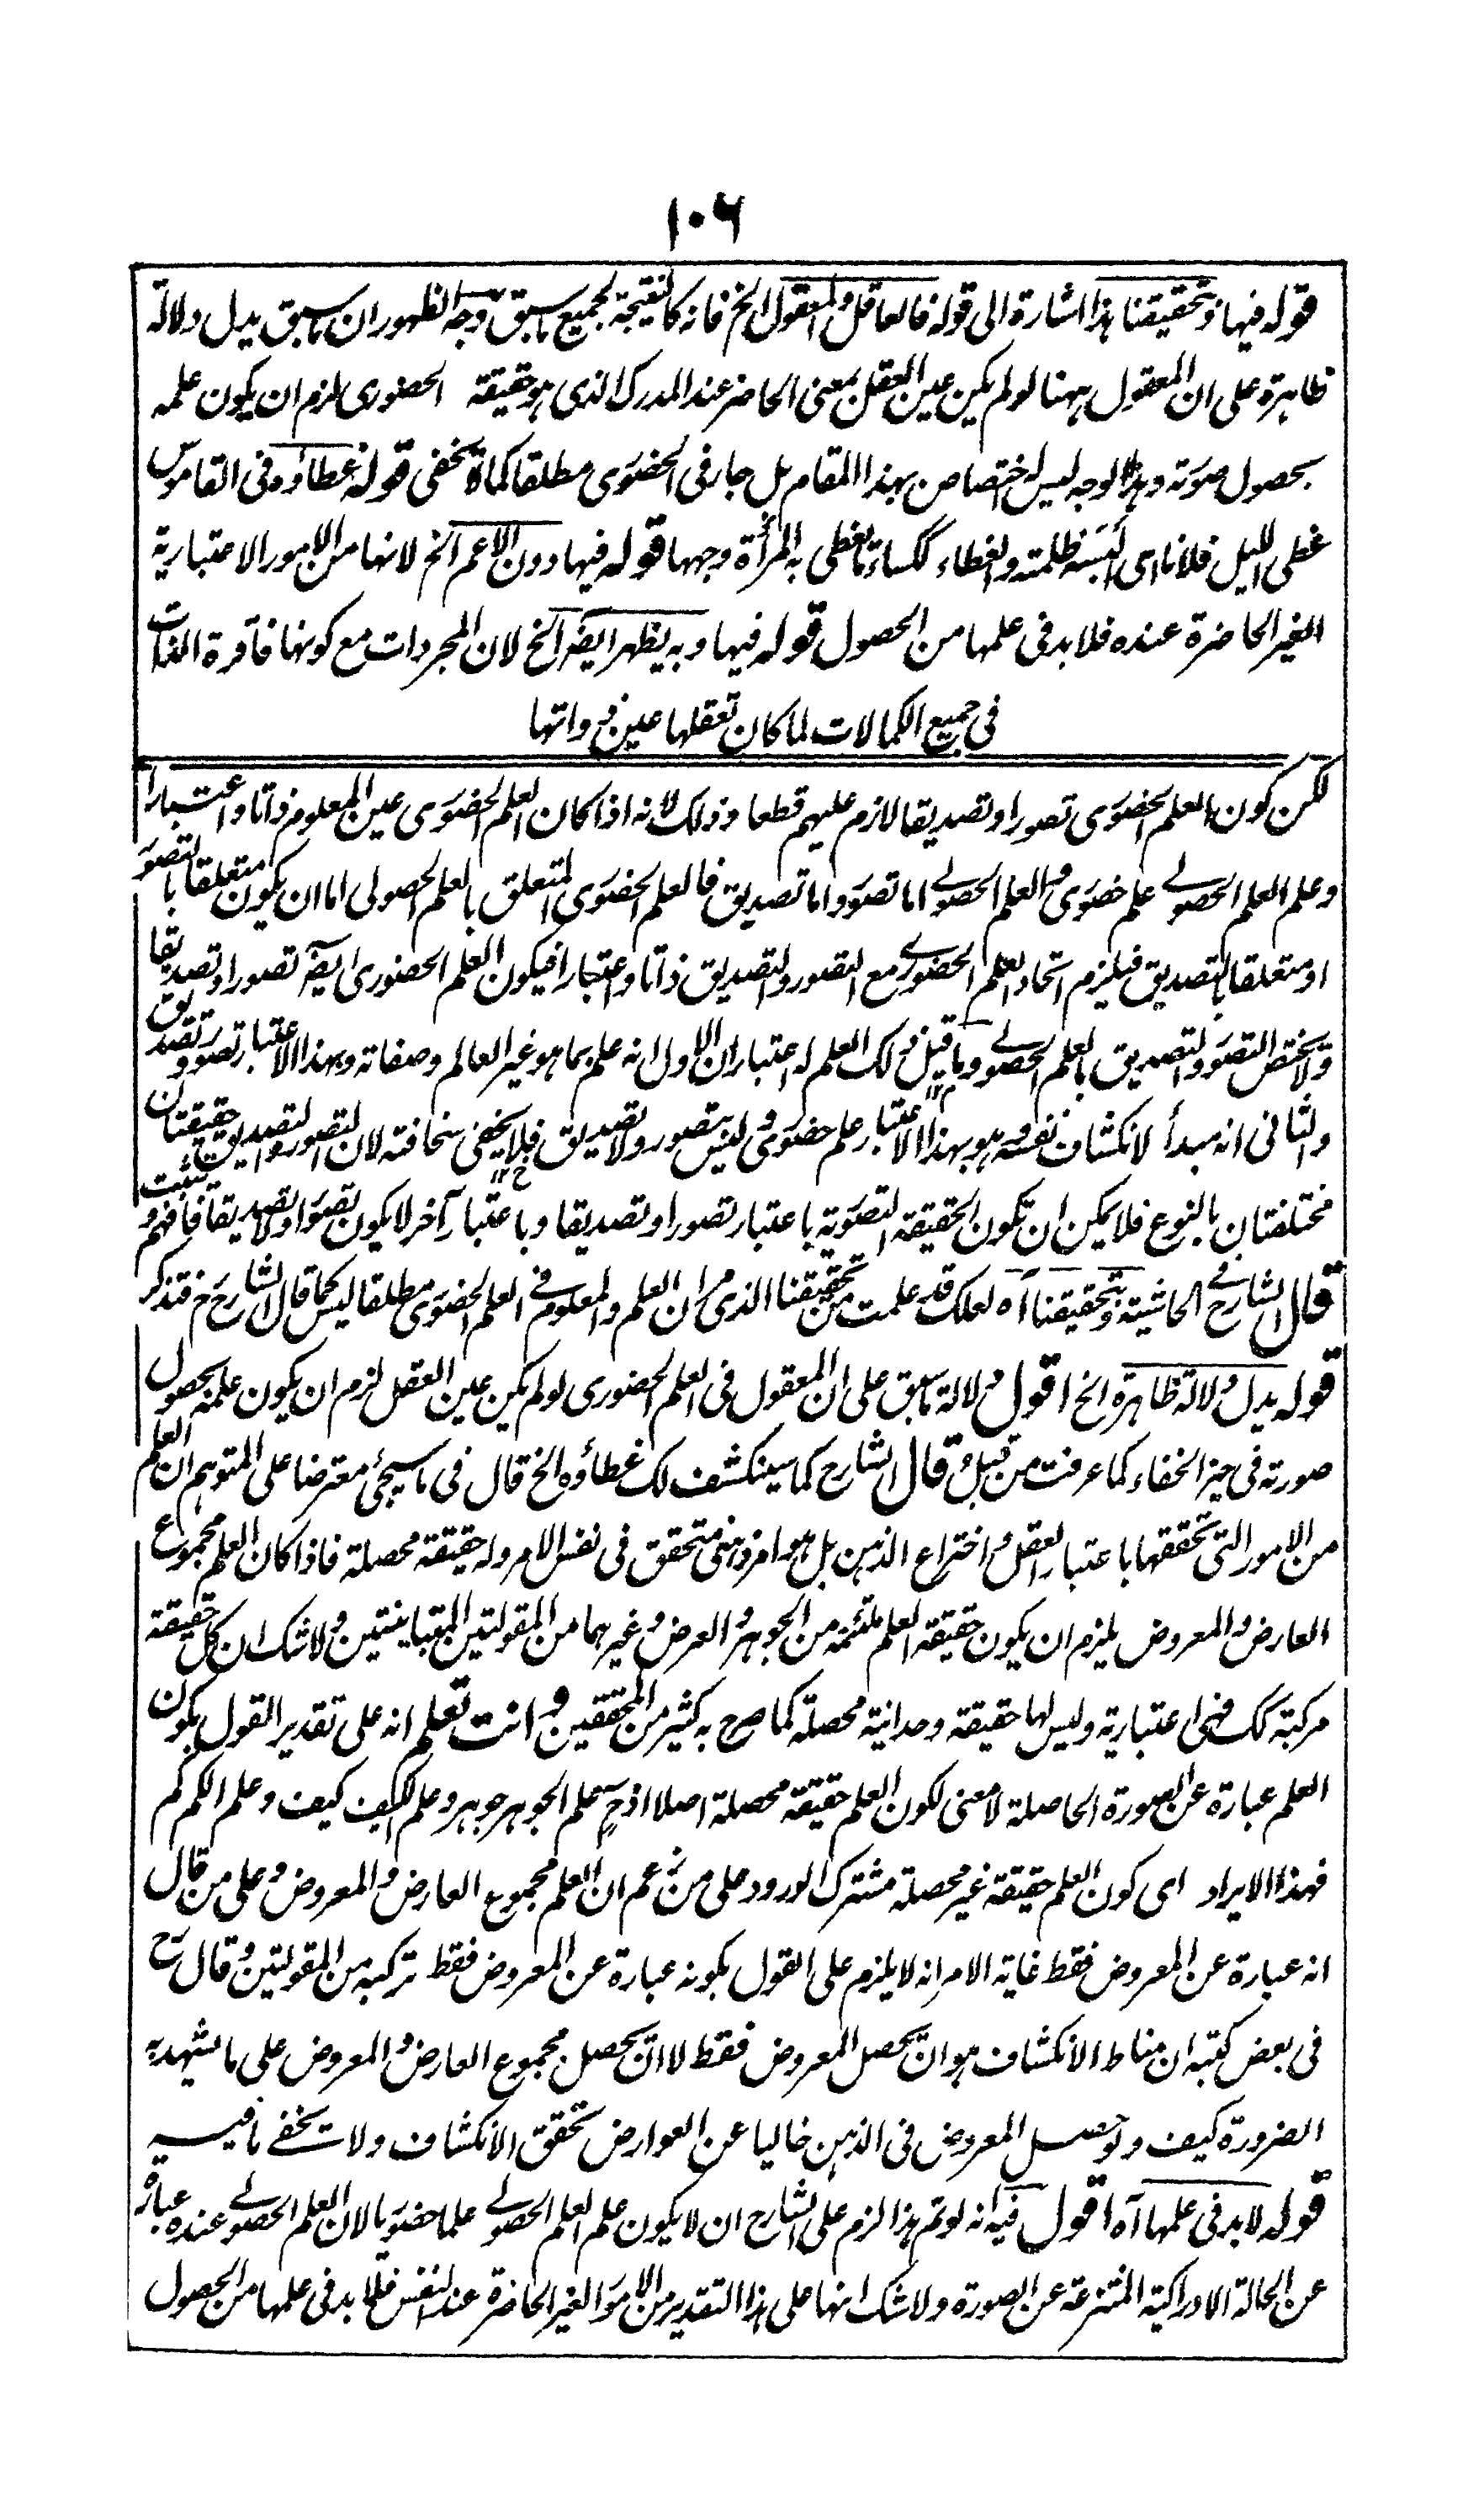 ١٠٦
قوله فيها وتحقيقنا هذا اشارة الى قوله فالعاقل والمعقول الخ فانه كالنتيجة لجميع ما سبق وجه الظهور ان ما سبق يدل دلالة
ظاهرة على ان المعقول ههنا لو لم يكن عين العقل بمعنى الحاضر عند المدرك الذى هو حقيقة الحضورى لزم ان يكون علمه
بحصول صورته وهذا الوجه ليس له اختصاص بهذا المقام بل جار فى الحضورى مطلقا كما لا يخفى قوله غطاؤه فى القاموس
غطى الليل فلانا اى البسه ظلمته والغطاء ككساء ما تغطى به المرأة وجهها قوله فيها دون الاعم الخ لانها من الامور الاعتبارية
الغير الحاضرة عنده فلا بد فى علمها من الحصول قوله فيها وبه يظهر ايضا الخ لان المجردات مع كونها فاقرة الذات
فى جميع الكمالات لما كان تعقلها عين ذواتها
لكن كون العلم الحضورى تصورا وتصديقا لازم عليهم قطعا وذلك لانه اذا كان العلم الحضورى عين المعلوم ذاتا واعتبارا
وعلم العلم الحصولى علم حضورى والعلم الحصولى اما تصور واما تصديق فالعلم الحضورى المتعلق بالعلم الحصولى اما ان يكون متعلقا بالتصور
او متعلقا بالتصديق فيلزم اتحاد العلم الحضورى مع التصور والتصديق ذاتا واعتبارا فيكون العلم الحضورى ايضا تصورا وتصديقا
ولا يختص التصور والتصديق بالعلم الحصولى وما قيل ذلك العلم له اعتباران الاول انه علم بما هو غير العالم وصفاته وبهذا الاعتبار تصور وتصديق
والثانى انه مبدأ لانكشاف نفسه وهو بهذا الاعتبار علم حضورى وليس بتصور ولا تصديق فلا يخفى سخافته لان التصور والتصديق حقيقتان
مختلفتان بالنوع فلا يمكن ان تكون الحقيقة التصورية باعتبار تصورا وتصديقا وباعتبار آخر لا يكون تصورا ولا تصديقا فافهم وتثبت
قال الشارح فى الحاشية وتحقيقنا آه لعلك قد علمت من تحقيقنا الذى مر ان العلم والمعلوم فى العلم الحضورى مطلقا ليس كما قال الشارح فتذكر
قوله يدل دلالة ظاهرة الخ اقول دلالة ما سبق على ان المعقول فى العلم الحضورى لو لم يكن عين العقل لزم ان يكون علمه بحصول
صورته فى حيز الخفاء كما عرفت من قبل وقال الشارح كما سينكشف لك غطاؤه الخ قال فى ما سيجئ معترضا على المتوهم ان العلم
من الامور التى تحققها باعتبار العقل واختراع الذهن بل هو امر ذهنى متحقق فى نفس الامر وله حقيقة محصلة فاذا كان العلم مجموع
العارض والمعروض يلزم ان يكون حقيقة العلم ملتئمة من الجوهر والعرض وغيرهما من المقولتين المتباينتين ولا شك ان كل حقيقة
مركبة كذلك فهى اعتبارية وليس لها حقيقة وحدانية محصلة كما صرح به كثير من المحققين وانت تعلم انه على تقدير القول بكون
العلم عبارة عن الصورة الحاصلة لا معنى لكون العلم حقيقة محصلة اصلا اذ ح علم الجوهر جوهر وعلم الكيف كيف وعلم الكم كم
فهذا الايراد اى كون العلم حقيقة غير محصلة مشترك الورود على من زعم ان العلم مجموع العارض والمعروض وعلى من قال
انه عبارة عن المعروض فقط غاية الامر انه لا يلزم على القول بكونه عبارة عن المعروض فقط تركبه من المقولتين وقال رح
فى بعض كتبه ان مناط الانكشاف هو ان تحصل المعروض فقط لا ان تحصل مجموع العارض والمعروض على ما تشهد به
الضرورة كيف ولو حصل المعروض فى الذهن خاليا عن العوارض تحقق الانكشاف ولا يخفى ما فيه
قوله لا بد فى علمها آه اقول فيه انه لو تم هذا لزم على الشارح ان لا يكون علم العلم الحصولى علما حضوريا لان العلم الحصولى عنده عبارة
عن الحالة الادراكية المنتزعة عن الصورة ولا شك انها على هذا التقدير من الامور الغير الحاضرة عند النفس فلا بد فى علمها من الحصول